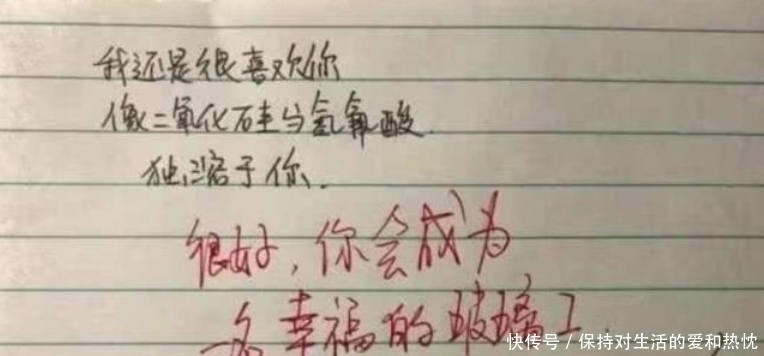 我还是很喜欢你
像二氧化硅与氢氟酸
独溶于你.
很好，你会成为
一名幸福的玻璃工.
快传号/保持对生活的爱和热忱